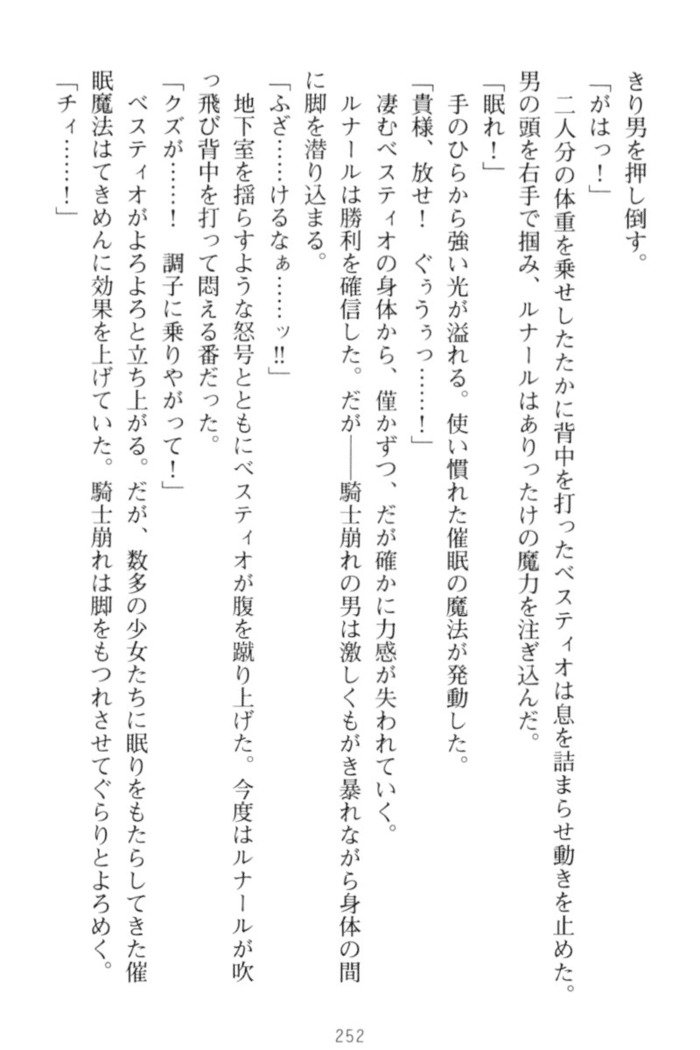 きり男を押し倒す。
「がはっ！」
　二人分の体重を乗せしたたかに背中を打ったベスティオは息を詰まらせ動きを止めた。
男の頭を右手で掴み、ルナールはありったけの魔力を注ぎ込んだ。
「眠れ！」
　手のひらから強い光が溢れる。使い慣れた催眠の魔法が発動した。
「貴様、放せ！　ぐぅうぅっ……！」
　凄むベスティオの身体から、僅かずつ、だが確かに力感が失われていく。
　ルナールは勝利を確信した。だが――騎士崩れの男は激しくもがき暴れながら身体の間
に脚を潜り込まる。
「ふざ……けるなぁ……ッ!!」
　地下室を揺らすような怒号とともにベスティオが腹を蹴り上げた。今度はルナールが吹
っ飛び背中を打って悶える番だった。
「クズが……！　調子に乗りやがって！」
　ベスティオがよろよろと立ち上がる。だが、数多の少女たちに眠りをもたらしてきた催
眠魔法はてきめんに効果を上げていた。騎士崩れは脚をもつれさせてぐらりとよろめく。
「チィ……！」
252